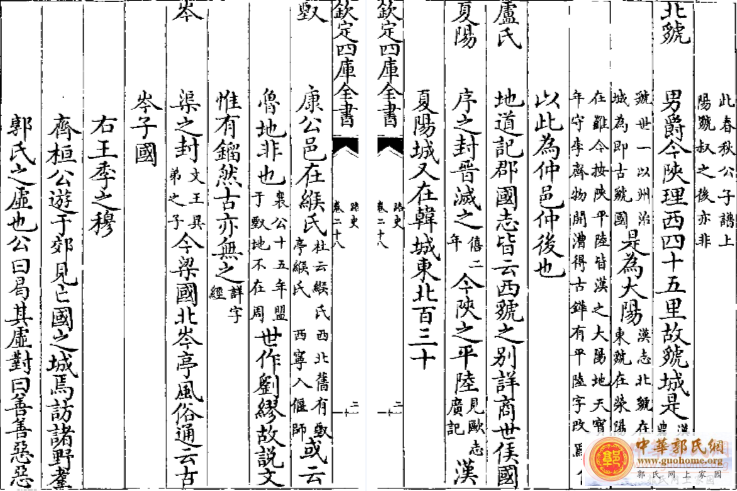 此春秋公子譜上
陽虢叔之後亦非
北虢 男爵今陝理西四十五里故虢城是
虢世一以州治
城為即古虢國
是為大陽
漢志北虢在
東虢在滎陽
在雖今按陝平陸皆漢之大陽地天寶
年守李齊物開漕得古鏵有平陸字改爲
以此為仲邑仲後也
盧氏 地道記郡國志皆云西虢之别詳商世侯國
夏陽 序之封晉滅之
僖二
年
今陝之平陸
見歐志
廣記
漢
夏陽城又在韓城東北百三十
欽定四庫全書
路史
卷二十八
二十一
欽定四庫全書
路史
卷二十八
二十一
康公邑在緱氏
杜云緱氏西北舊有
亭緱氏西寧入偃師
或云
魯地非也
襄公十五年盟
于地不在周
世作劉繆故說文
惟有鎦然古亦無之
詳字
經
岑 渠之封
文王異
弟之子
今梁國北岑亭風俗通云古
岑子國
右王季之穆
齊桓公遊于郊見亡國之城焉訪諸野耋
郭氏之虛也公曰曷其虛對曰善善惡惡
中華郭氏網
www.guohome.org
郭氏網上家園